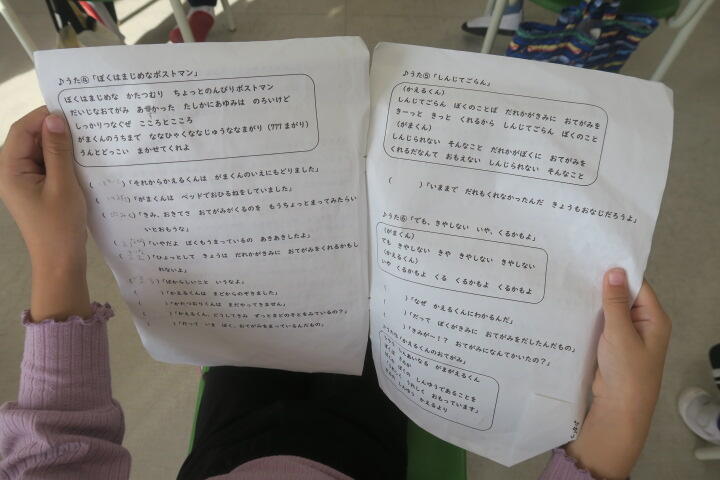 ♪うた④「ぼくはまじめなポストマン」
ぼくはまじめな　かたつむり　ちょっとのんびりポストマン
だいじなおてがみ　あずかった　たしかにあゆみは　のろいけど
しっかりつなぐぜ　こころとこころ
がまくんのうちまで　ななひゃくななじゅうななまがり（777まがり）
うんとどっこい　まかせてくれよ
(　　　)「それからかえるくんは　がまくんのいえにもどりました」
(　　　)「がまくんは　ベッドでおひるねをしていました」
(　　　)「きみ、おきてさ　おてがみがくるのを　もうちょっとまってみたらい
いとおもうな」
(　　　)「いやだよ　ぼくもうまっているの　あきあきしたよ」
(　　　)「ひょっとして　きょうは　だれかがきみに　おてがみをくれるかもし
れないよ」
(　　　)「ばからしいこと　いうなよ」
(　　　)「かえるくんは　まどからのぞきました」
(　　　)「かたつむりくんは　まだやってきません」
(　　　)「かえるくん、どうしてきみ　ずっとまどのそとをみているの？」
(　　　)「だって　いま　ぼく、おてがみをまっているんだもの」
♪うた⑤「しんじてごらん」
(かえるくん)
しんじてごらん　ぼくのことば　だれかがきみに　おてがみを
きーっと　きっと　くれるから　しんじてごらん　ぼくのこと
(がまくん)
しんじられない　そんなこと　だれかがぼくに　おてがみを
くれるだなんて　おもえない　しんじられない　そんなこと
(　　　)「いままで　だれもくれなかったんだ　きょうもおなじだろうよ」
♪うた⑥「でも、きやしない　いや、くるかもよ」
(がまくん)
でも　きやしない　きや　きやしない　きやしない
(かえるくん)
いや　くるかもよ　くる　くるかもよ　くるかもよ
(　　　)「なぜ　かえるくんにわかるんだ」
(　　　)「だって　ぼくがきみに　おてがみをだしたんだもの」
(　　　)「きみが－！？　おてがみになんてかいたの？」
「かえるくんのおてがみ」
しんあいなる　がまがえるくん
ぼくの　しんゆうであることを
うれしく　おもっています」
しんゆう　かえるより